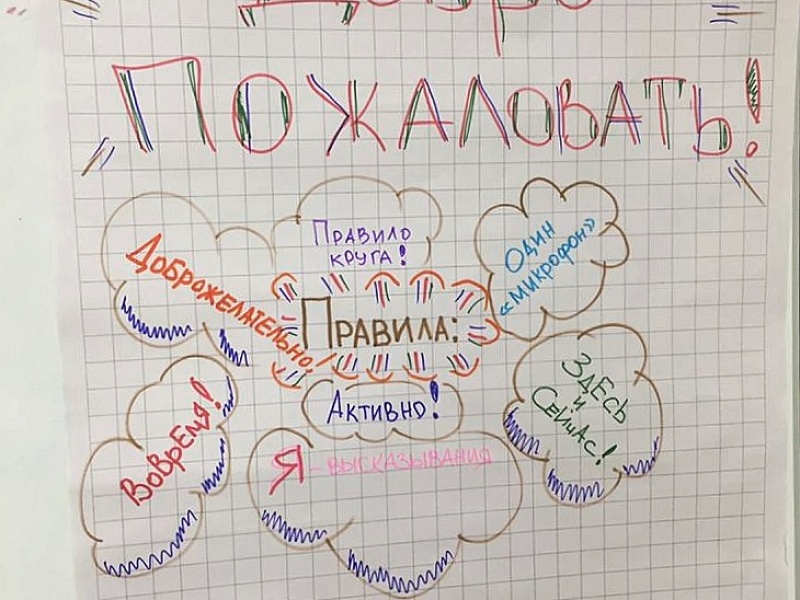 ПОЖАЛОВАТЬ!
ДОБРОЖЕЛАТЕЛЬНО!
ПРАВИЛО
КРУГА!
ОДИН
«МИКРОФОН»
ПРАВИЛА:
ВОВРЕМЯ!
АКТИВНО!
ЗДЕСЬ
И
СЕЙЧАС!
Я - ВЫСКАЗЫВАНИЯ